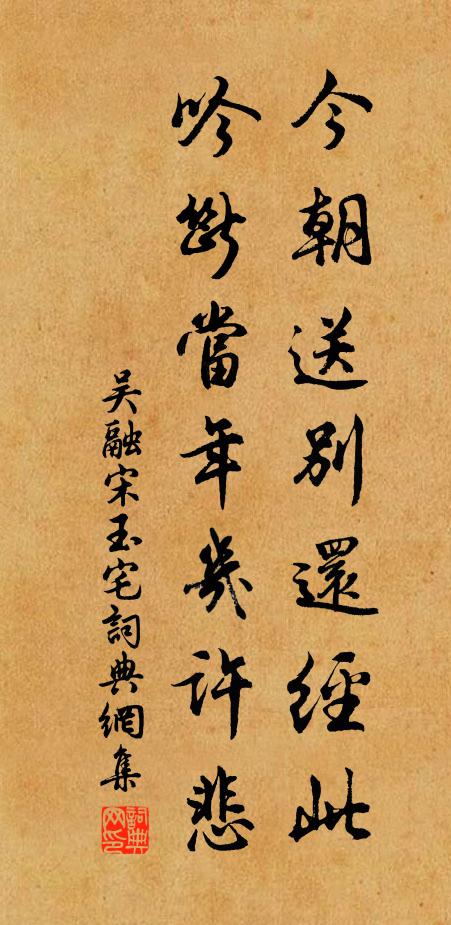 今朝送別還經此
吟斷當年幾許悲
吴融宋玉宅詞典網集
詞典网印